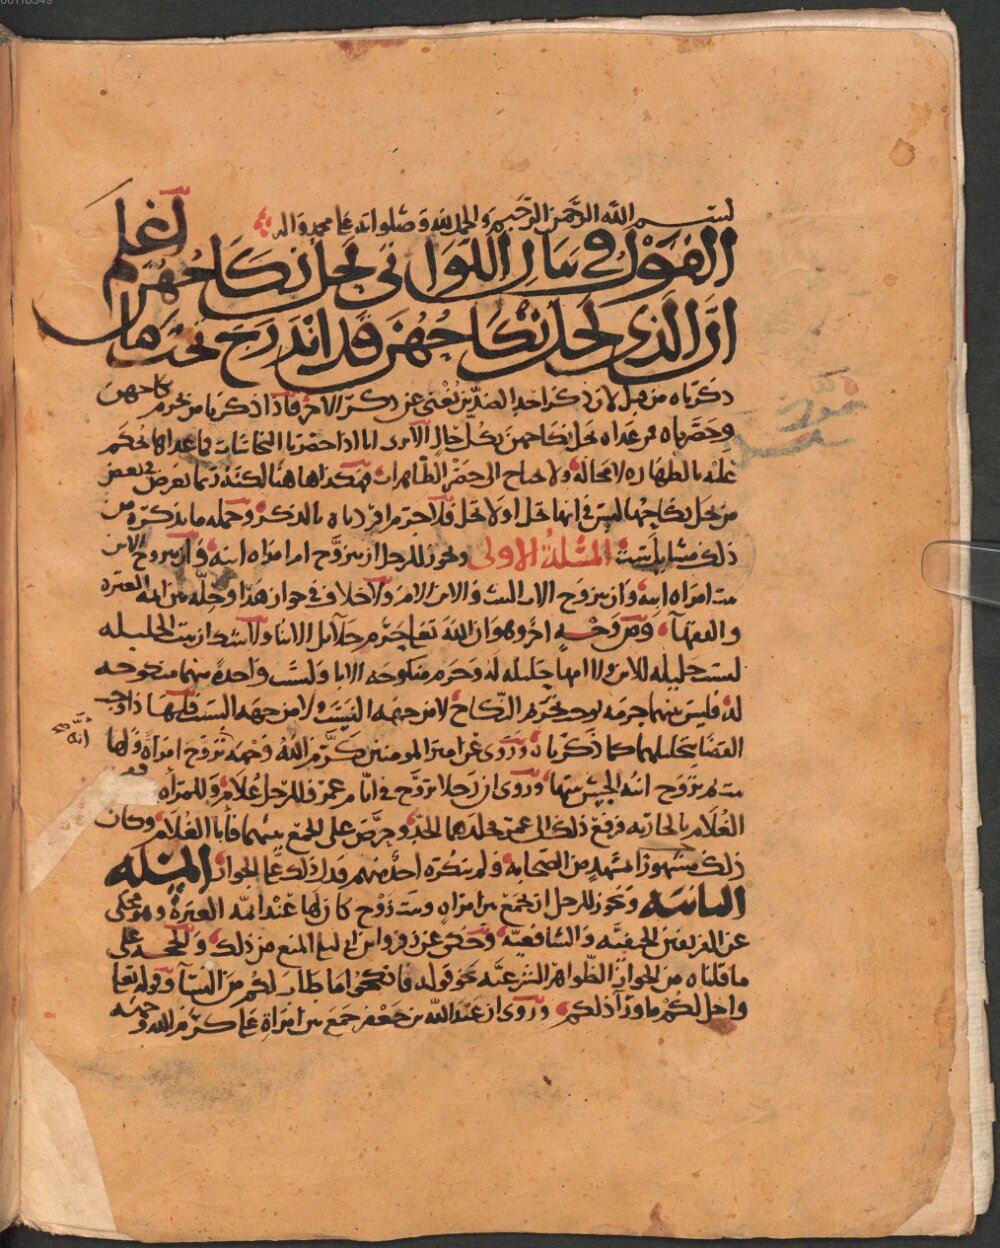 0078349
بسم الله الرحمن الرحيم والحمد لله وصلواته على محمد واله
القول في بيان اللواتي يحل نكاحهن اعلم
ان الذي يحل نكاحهن قد اندرج تحت ما
ذكرناه من قبل لان ذكر احد الضدين يغني عن ذكر الاخر فاذا ذكرنا من يحرم نكاحهن
وحصرناه فمن عداه يحل نكاحهن بكل حال الا ترى انا اذا حصرنا النجاسات فما عداها يحكم
عليه بالطهارة لا محالة ولا يحتاج الى حصر الطاهرات فهكذا هاهنا لكنه ربما يعرض في بعض
من يحل نكاحها لبس في انها تحل او لا تحل فلا جرم افردناه بالذكر وجملة ما نذكره من
ذلك مسايل ست المسئلة الاولى ويجوز للرجل ان يتزوج ام امراة ابنه وان يتزوج الابن
بنت امراة ابيه وان يتزوج الاب البنت والابن الام ولا خلاف في جواز هذا وحله بين ائمة العترة
والفقهاء ومن وجه اخر وهو ان الله تعالى حرم حلائل الابناء ولا شك ان بنت الحليلة
ليست حليلة للابن ولا امها حليلة له وحرم منكوحة الابا وليست واحدة منهما منكوحة
له فليس بينهما حرمة توجب تحريم النكاح لا من جهة النسب ولا من جهة السبب فلهذا وجب
القضا بتحليلهما كما ذكرناه وروي عن امير المومنين كرم الله وجهه تزوج امراة ولها
انه
بنت ثم تزوج ابنه الحسن بنتها وروي ان رجلا تزوج في ايام عمر وللرجل غلام وللمراة
الغلام بالجارية فرفع ذلك الى عمر فجلدهما الحد وحرص على الجمع بينهما فابا الغلام وكان
ذلك مشهورا بمشهد من الصحابة ولم ينكره احد منهم فدل ذلك على الجواز المسئلة
الثانية ويجوز للرجل ان يجمع بين امراة وبنت زوج كان لها عند ائمة العترة وهو محكي
عن الفريقين الحنفية والشافعية وحكي عن زفر وابن ابي ليلى المنع من ذلك والحجة على
ما قلناه من الجواز الظواهر الشرعية نحو قوله فانكحوا ما طاب لكم من النساء وقوله تعالى
واحل لكم ما وراء ذلكم وروي ان عبد الله بن جعفر جمع بين امراة علي كرم الله وجهه